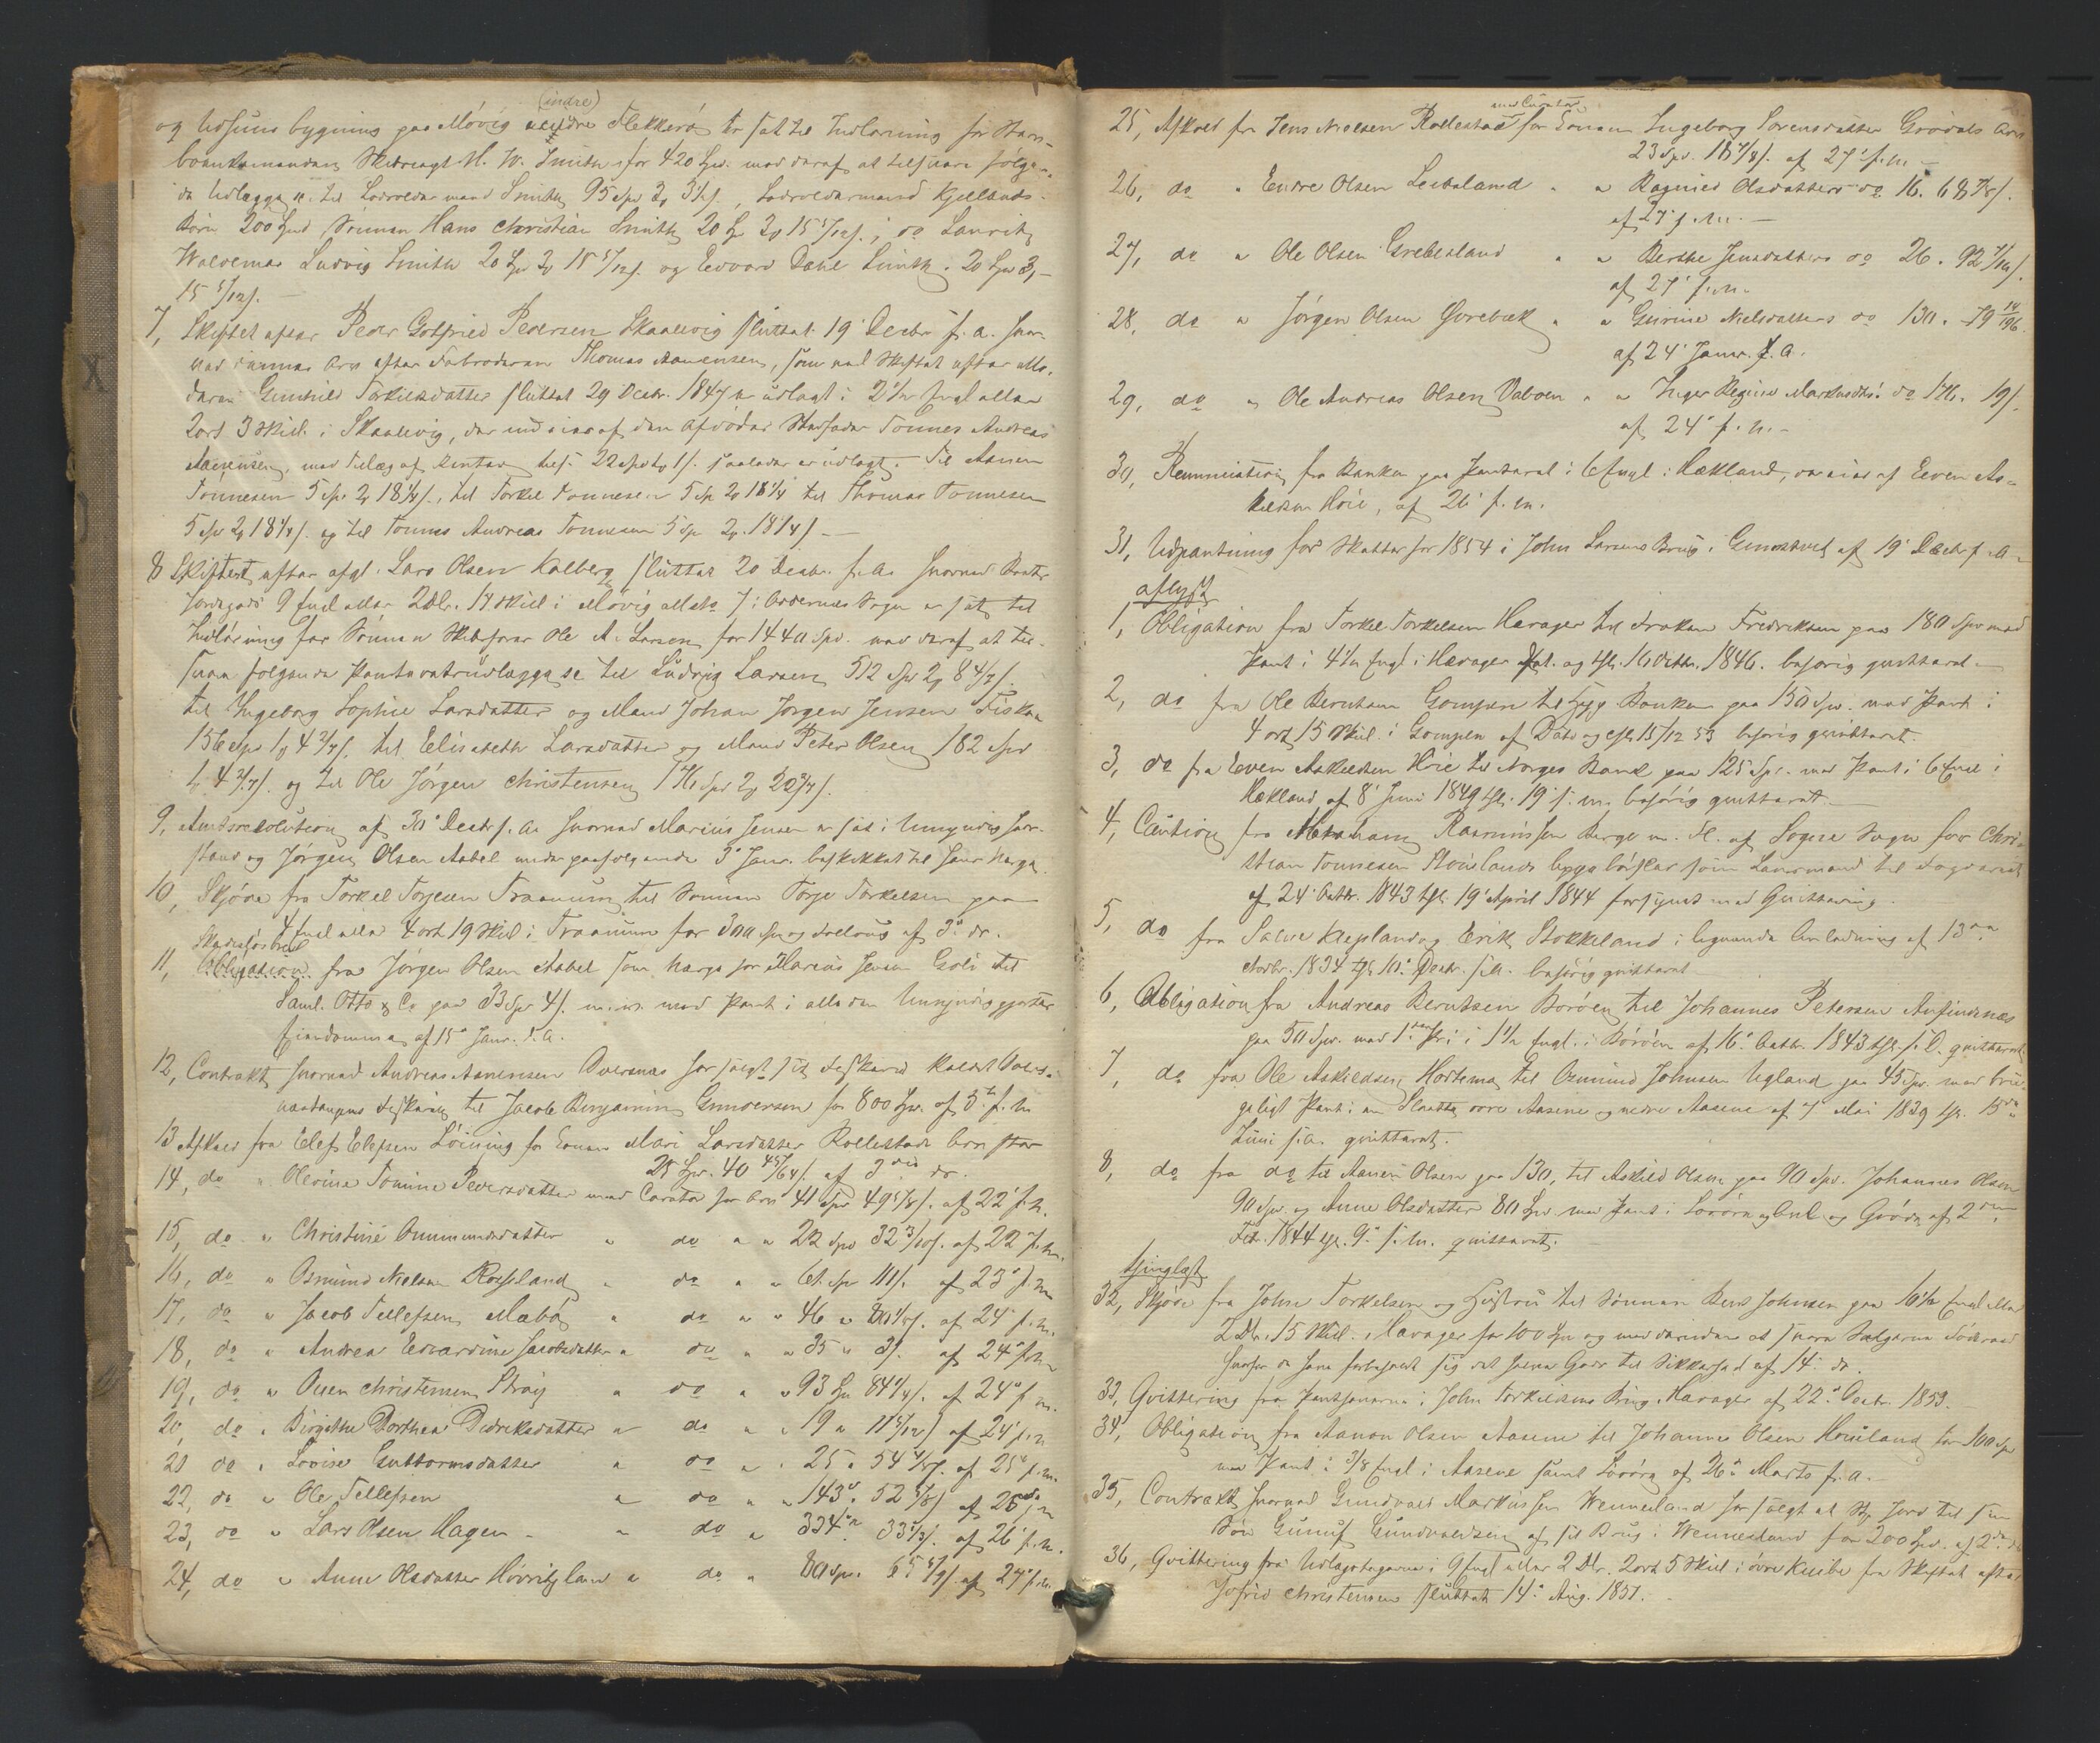 (indre)
og Udhuus bygning paa Møvig indre Flekkerø er sat til Indløsning for Stervboenkemanden Skibsreagt M. W. Smith for 420 Spd. mod deraf at tilsvare følgen-
de Udlægge : til Lodsoldermand Smith 95 Spd 2 3 s., Lodsoldermand Kjellands
Børn 200 Spd Sønnen Hans Christian Smith 20 Sp 2 15 5/12 s.; do Lauritz
Waldemar Ludvig Smith 20 Spd 2 15 5/12 s. og Edvard Dahl Smith 20 Spd 2
15 5/12 s.
7, Skiftet efter Peder Gotfried Pedersen Skaalevig sluttet 19 Decbr f. a. hvor-
ved dennes Arv efter Fabroderen Thomas Aanensen, som ved Skiftet efter Mo-
deren Gunhild Torkildsdatter sluttet 29 Decbr. 1847 er udlagt i 2 1/2 Engl eller
2 ort 3 Skil. i Skaalevig, der udvises af den afdødes Stedfader Tønnes Andreas
Aanensen, med Tillæg af Renter tils. 22 Spd 1 s. saaledes er udlagt. Til Aanen
Tønnesen 5 Sp 2 18 1/4 s., til Torkel Tønnesen 5 Sp 2 18 1/4 til Thomas Tønnesen
5 Sp 2 18 1/4 s. og til Tønnes Andreas Tønnesen 5 Sp 2. 18 1/4 s —
8 Skiftet efter afgl. Lars Olsen Kalberg sluttet 20 Decbr. f. a. hvorved Boets
Jordegods 9 Engl eller 2 Dlr. 14 Skil i Møvig i Oddernes Sogn er sat til
Indløsning for Sønnen Skibsfører Ole A. Larsen for 1440 Spd. mod deraf at til-
svare følgende Panteretsudlæggelse til Ludvig Larsen 512 Spd 2 8 4/7 s.
til Ingeborg Sophie Larsdatter og Mand Johan Jørgen Jensen Fiskaa
156 Spd 1 4 2/7 s. til Elisabeth Larsdatter og Mand Peter Olsen 182 Spd
1, 4 2/7 s. og til Ole Jørgen Christensen 176 Spd 2 20 2/7 s.
9, Amtsresolution af 30 Decbr f. a. hvorved Marius Jensen er sat i Umyndig har
stand og Jørgen Olsen Aabel under paafølgende 3 Janr. beskikket til hans Værge
10, Skjøde fra Torkel Torjesen Traanum til Sønnen Torje Torkelsen paa
4 Engl eller 4 ort 19 Skil i Traanum for 300 Spd og Follaug af 3 ds.
Skadesløsbrev
11, Obligation fra Jørgen Olsen Aabel som Værge for Marius Jensen Gsli til
Saml. Otto & Co paa 33 Spd 4 s. m. m. med Pant i alle den Umyndiggjortes
Eiendomme af 15 Janr. d. a.
12, Contrakt hvorved Andreas Aanensen Dversnæs har solgt sit Fiskerie kaldet
vaagens Fiskerie til Jacob Benjamin Gundersen for 800 Spd. af 5 f. m
13 Afkald fra Elef Elefsen Løining for Konen Mari Larsdatter Rollestads Arv stor
28 Spd. 40 45/64 s. af 3die ds.
14, do " Olevine Tomine Pedersdatter med Curator for Arv 41 Spd 49 5/8 s. af 22 f. m.
15, do " Christine Ommundsdatter " do " " 22 Spd 32 3/10 s. af 22 f. m.
16, do " Osmund Nielsen Rossland " do " " 61 Sp 111 s. af 23 f. m
17, do " Jacob Tellefsen Mæbø " do " " 46 " 80 1/5 s. af 24 f. m.
18, do " Andrea Edvardine Jacobsdatter " do " " 35 " 3 s. af 24 f. m
19, do " Ouen Christensen Strøy " do " " 93 Sp 84 1/4 s. af 24 f. m.
20, do " Birgithe Dorthea Didriksdatter " do " " 19 " 11 5/12 s af 24 f. m
21 do " Lovise Guttormsdatter " do " " 25 " 54 s. af 25 f. m.
22, do " Ole Tellefsen " do " " 143 " 52 5/8 s af 26 f. m
23, do " Lars Olsen Hagen " do " 334 " 33 s. af 26 f. m.
24, do " Anne Olsdatter Høvritzland " do " 80 Spd. 65 5/9 s. af 27 f. m.
med Curator
25, Afkald fra Jens Nielsen Rollestad for Konen Ingeborg Sørensdatter Grødals Arv
23 Spd. 18 7/8 s. af 27 f. m. —
26, do " Endre Olsen Leibaland " " Ragnild Olsdatters do 16. 68 7/8 s.
af 27 f. m. —
27, do " Ole Olsen Grebesland " " Berthe Jensdatters do 26. 92 s.
af 27 f. m.
28, do " Jørgen Olsen Gorebek " " Gurine Nielsdatters do 130. 79 14/196.
af 24 Janr. d. a.
29, do " Ole Andreas Olsen Vaboen " " Inger Regine Markusdtr. do 176. 19 s.
af 24 f. m. —
30, Renunciation fra Banken paa Panteret i 6 Engl i Hækland, som eies af Even As-
kildsen Høie, af 26 f. m.
31, Udpantning for Skatter for 1854 i John Larsens Brug i Gumostved af 19 Decbr f. a.
aflyst
1, Obligation fra Torkel Torkelsen Harager til Frøken Fredriksen paa 180 Spd mod
Pant i 4 1/2 Engl i Harager dat. og tgl. 16 Octbr. 1846. behørig qvitteret. —
2, do fra Ole Berntsen Gompen til Hyp. Banken paa 150 Spd. mod Pant i
4 ort 15 Skil. i Gompen af Dato og tgl. 15/12 53 behørig qvitteret.
3, do fra Even Askildsen Høie til Norges Bank paa 125 Spd. mod Pant i 6 Engl i
Hækland af 8 Juni 1849 tgl. 19 s. m. behørig qvitteret. —
4, Caution fra Abraham Rasmussen Berge m. Fl. af Søgne Sogn for Chri-
stian Tønnesen Stouslands Oppebørsler som Lensmand til Fogderiet
af 24 Octbr. 1843 tgl. 19 April 1844 forsynet med Qvittering.
5, do fra Salve Kleplandog Erik Stokkeland i lignende Anledning af 13
Novbr. 1834 tgl. 10 Decbr. s. a. behørig qvitteret
6, Obligation fra Andreas Berntsen Borøen til Johannes Petersen Anfindsnæs
paa 50 Spd. med 1ste Pri i 1 1/2 Engl. i Børøen af 16 Octbr. 1843 tgl. s. D. qvitteret
7, do fra Ole Askildsen Hortemo til Osmund Johnsen Ugland paa 45 Spd. mod bru-
geligt Pant i en Slaatte øvre Aasene og nedre Aasene af 7 Mai 1839 tgl. 15
Juni s. a. qvitteret.
8, do fra do til Aanen Olsen paa 130, til Askild Olsen paa 90 Spd. Johannes Olsen
90 Spd. og Anne Olsdatter 80 Spd. mod Pant i Løsøre og Avl og Grøde af 2den
Febr. 1844 tgl. 9 s. m. qvitteret.
thinglæst
32, Skjøde fra John Torkelsen og Hustru til Sønnen Bert Johnsen paa 6 1/2 Engl eller
2 Dlr. 15 Skil. i Harager for 100 Spd og med desuden at svare Sælgerne Føderaad
hvorfor de have forbeholdt sig det halve Gaar til Sikkerhed af 14 ds.
33, Qvittering fra Panthaverne i John Torkildsens Brug i Harager af 22 Octr. 1853.
34, Obligation fra Aanon Olsen Aasene til Johannes Olsen Houiland for 100 Spd
mod Pant i 3/8 Engl i Aasene samt Løsøre af 26 Marts f. a. —
35, Contrakt hvorved Gundvald Markussen Wennesland har solgt et St. Jord til sin
Søn Gunuf Gundvaldsen af sit Brug i Wennesland for 200 Spd. af 2
36, Qvittering fra Udlægstagerne i 9 Engl eller 2 Dlr. 2 ort 5 Skil i øvre Knibe fra Skiftet efter
Jofrid Christensen sluttet 14 Aug. 1851.